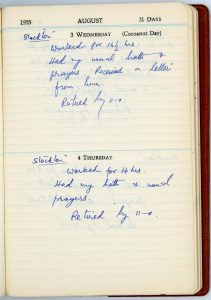 1955 AUGUST 31 DAYS
"Stockton" 3 WEDNESDAY (Coconut Day)
Worked for 14½ hrs.
Had my usual bath &
prayers Received a letter
from home.
Retired by 11-0
"Stockton" 4 THURSDAY
Worked for 14 hrs.
Had my bath & usual
prayers.
Retired by 11-0.